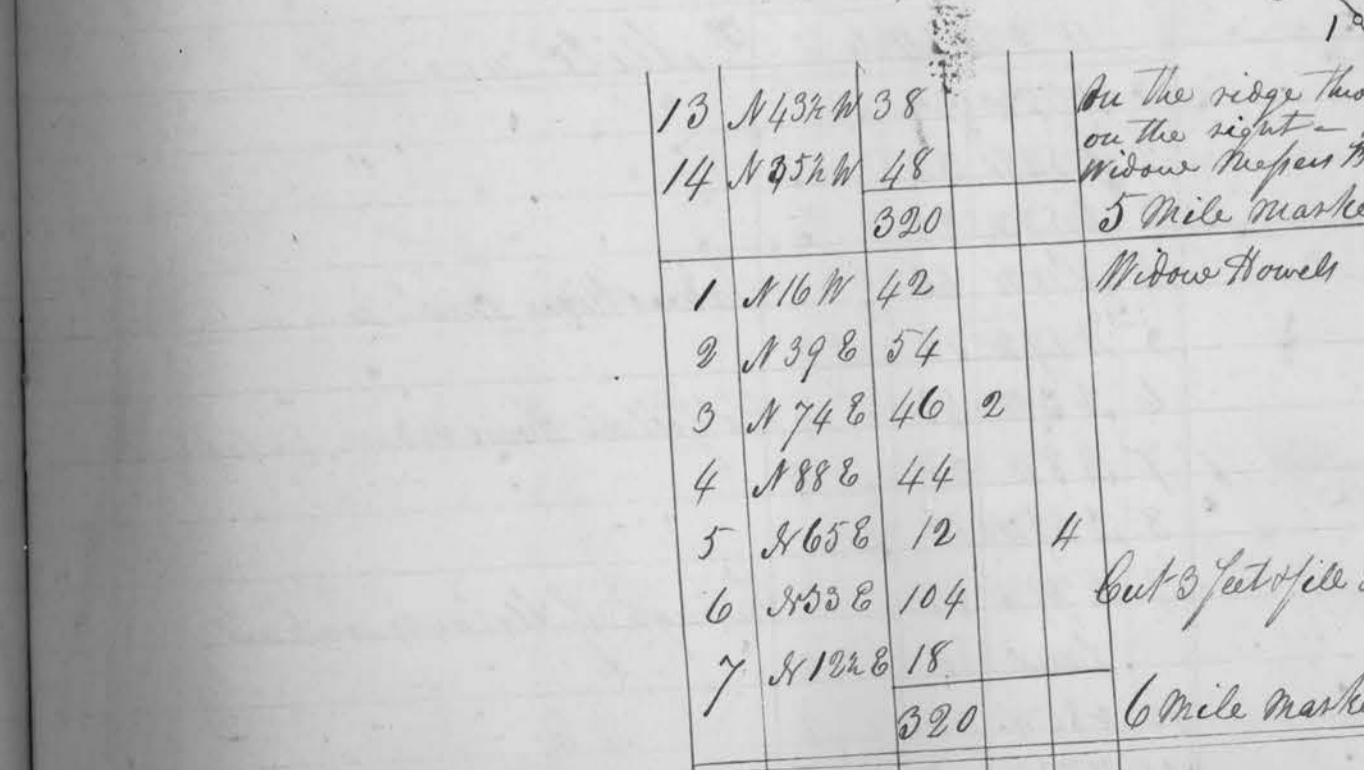 13 N43½W 38 On the ridge
on the right –
14 N35½W 48 Widow
320 5 Mile
1 N16W 42 Widow Howels
2 N39E 54
3 N74E 46 2
4 N88E 44
5 N65E 12 4
6 N33E 104 Cut 3 feet & fill
7 N12½E 18
320 6 Mile